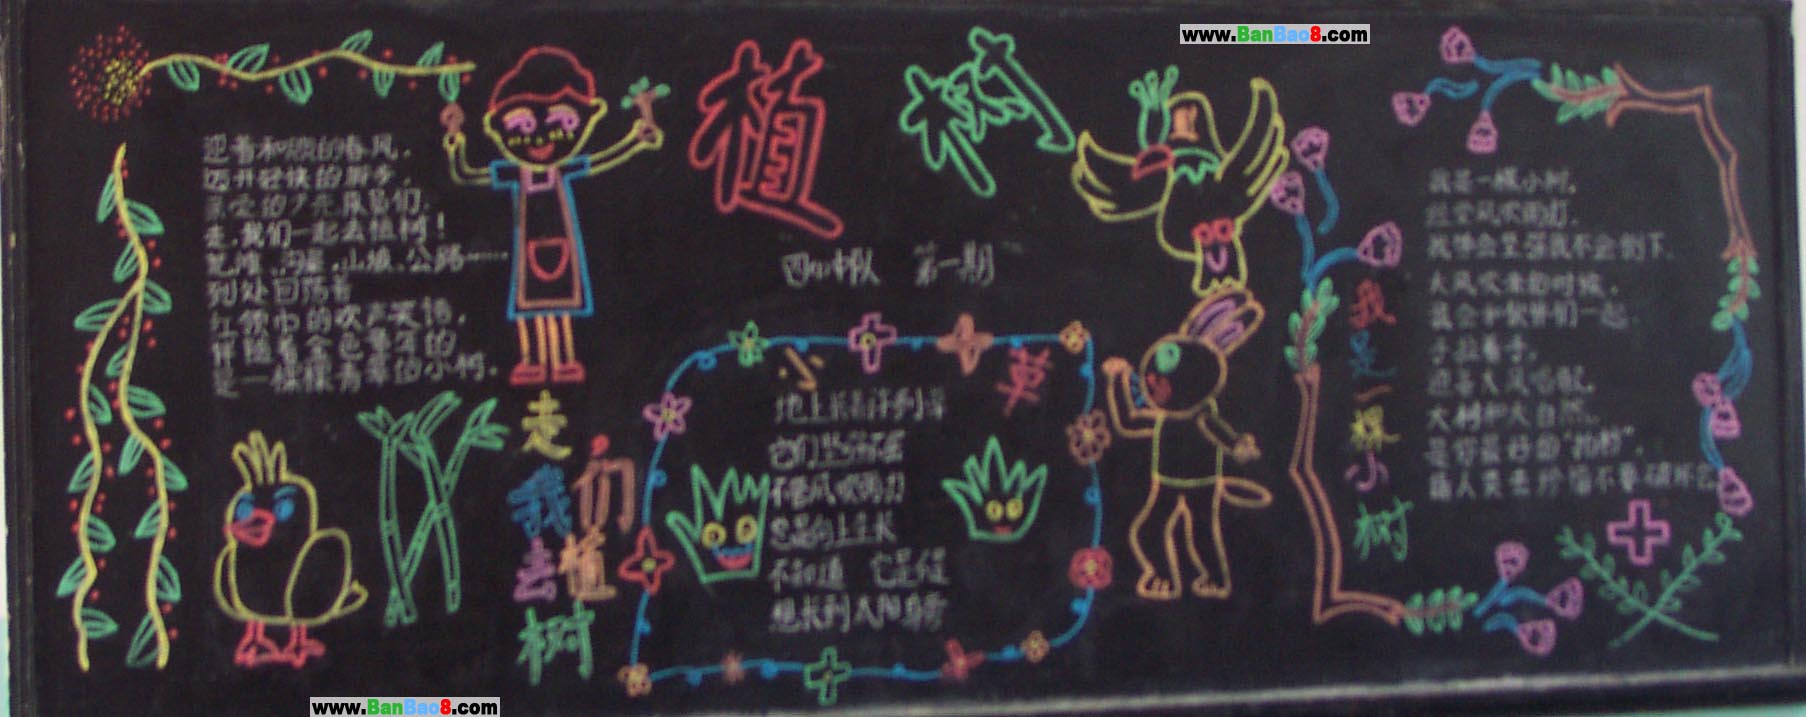 www.BanBao8.com
植树
四(4)中队 第一期
迎着和顺的春风，
迈开轻快的脚步，
亲爱的少先队员们，
走，我们一起去植树！
荒滩、沟渠、山坡、公路……
到处回荡着
红领巾的欢声笑语，
伴随着金色童年的
是一棵棵青翠的小树。
走我们去植树
小草
地上长着许多小草
它们
不管风吹雨打
总是向上生长
不知道 它是
想长到太阳身旁
我是一棵小树
我是一棵小树，
经受风吹雨打，
我会坚强我不会倒下，
大风吹来的时候，
我会和伙伴们一起，
手拉着手，
迎着大风唱歌，
大树和大自然，
是你最好的
请人类去珍惜不要破坏
www.BanBao8.com